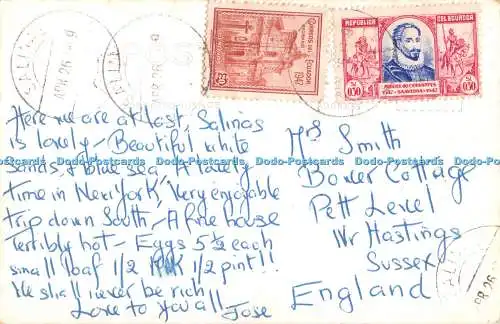 SALINAS
APR 26
CORREOS DEL ECUADOR
1947
REPUBLICA DEL ECUADOR
MIGUEL DE CERVANTES
SAAVEDRA
1547 - 1947
0,50 S/. 0,50
Here we are at last, Salinas
is lovely - Beautiful white
sands & blue sea. A lovely
time in New York, Very enjoyable
trip down South - A fine house
Terribly hot - Eggs 5½ each
small loaf 1/2 Milk 1/2 pint!!
We shall never be rich
Love to you all. Jose
Mrs Smith
Bower Cottage
Pett Level
Nr Hastings
Sussex
England
Dodo-Postcards Dodo-Postcards Dodo-Postcards Dodo-Postcards Dodo-Postcards